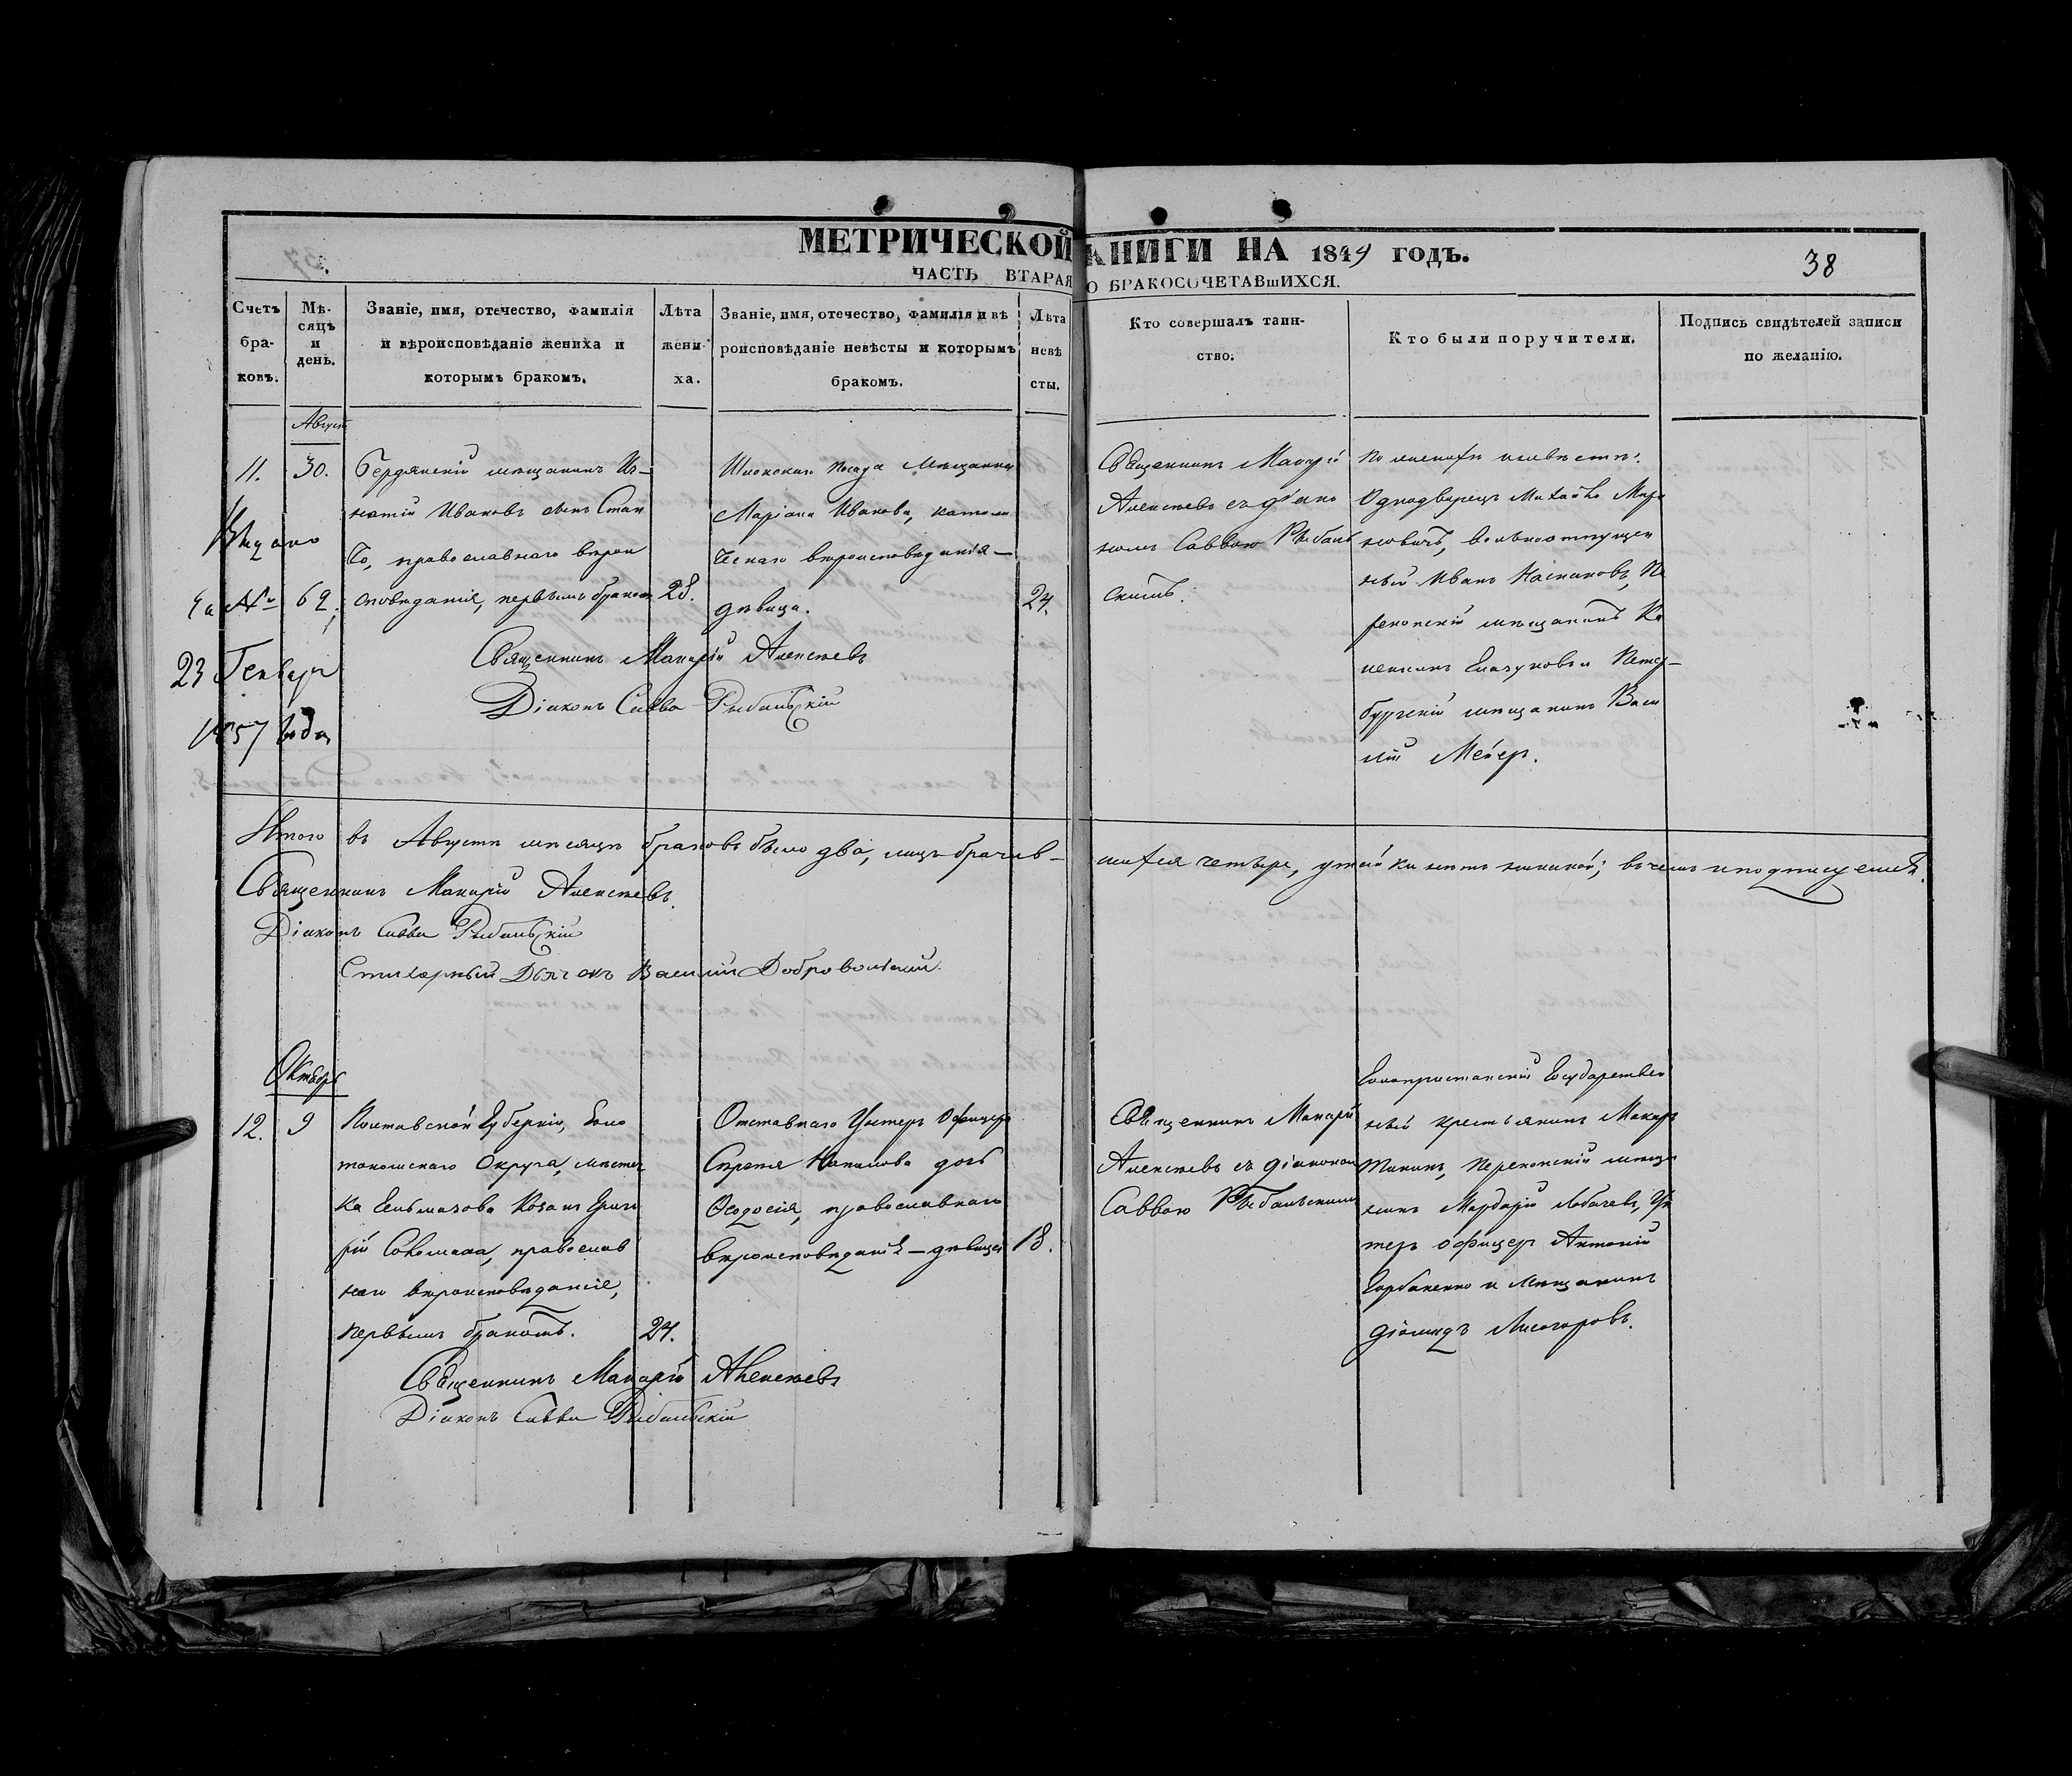 МЕТРИЧЕСКОЙ КНИГИ НА 1849 ГОДЪ.
38
ЧАСТЬ ВТАРАЯ О БРАКОСОЧЕТАВшИХСЯ.
Счетъ бра-ковъ.
Мѣ-сяцъ и день.
Званіе, имя, отечество, фамилія
и вѣроисповѣданіе жениха и
которымъ бракомъ.
Лѣта жени-ха.
Званіе, имя, отечество, фамилія и вѣ
роисповѣданіе невѣсты и которымъ
бракомъ.
Лѣта невѣ сты.
Кто совершалъ таин-
ство.
Кто были поручители.
Подпись свидѣтелей записи
по желанію.
Август
11.
30.
Бердянскій мѣщанинъ Иг-
натій Ивановъ сынъ
во, православнаго вѣрои
сповѣданія, первымъ бракомъ
28.
посада мѣщанка
Маріана Иванова, катoли
ческаго вѣроисповѣданія -
дѣвица.
24.
Священникъ Макарій
Алексѣевъ съ діако
номъ Саввою Рыбаль
скимъ.
По женихѣ и невѣстѣ:
Однодворецъ Михайло Мар
ковичъ, вольноотпущен
ный Иванъ
рекопскій мѣщанинъ
и Петер-
бургскій мѣщанинъ Васи
лій Мейер.
Выдано
за № 62,
23 Генваря
1857 года
Священникъ Макарій Алексѣевъ
Діаконъ Савва Рыбальскій
Итого въ Августѣ мѣсяцѣ браковъ было два, лицъ брачив-
шихся четыре, утайки нѣтъ никакой; въ чемъ и подписуемся.
Священникъ Макарій Алексѣевъ.
Діаконъ Савва Рыбальскій
Стихарный Дьячекъ Василій Добровольский.
Октябрь
12.
9
Полтавской Губерніи, Золо
тоношскаго Округа, мѣстеч
ка Гельмязова Козакъ Григо
рій, православ
наго вѣроисповѣданія,
первымъ бракомъ.
24.
Отставнаго Унтеръ Офицера
дочь
Ѳеодосія, православнаго
вѣроисповѣданія - дѣвица
18.
Священникъ Макарій
Алексѣевъ съ діакономъ
Саввою Рыбальскимъ
Голопристанскій Государствен
ный крестьянинъ Макаръ
Перекопскій мѣща
нинъ Мардарій Лобачевъ, Ун
теръ офицер Антоній
Горбаненко и Мѣщанинъ
Діомидъ Лисогоровъ.
Священникъ Макарій Алексѣевъ
Діаконъ Савва Рыбальскій